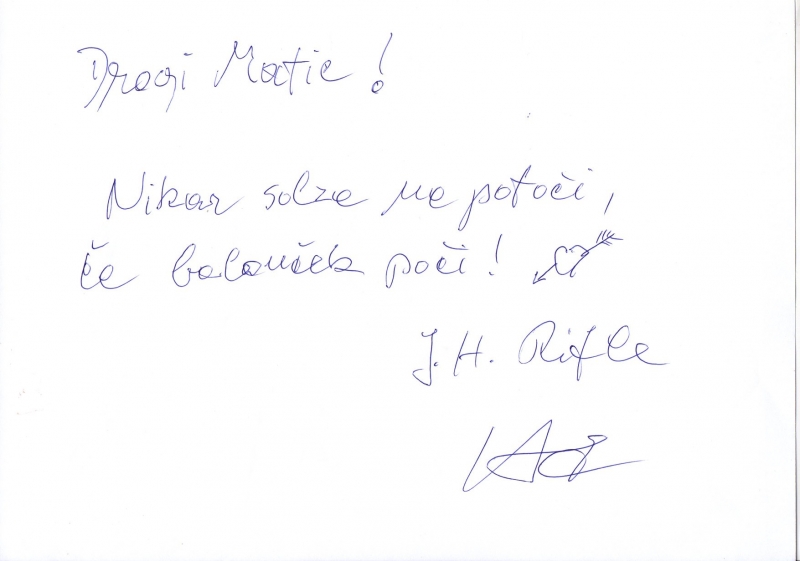 Dragi Matic!
Nikar solze ne potoči,
če balonček poči!
J. H. Rifle